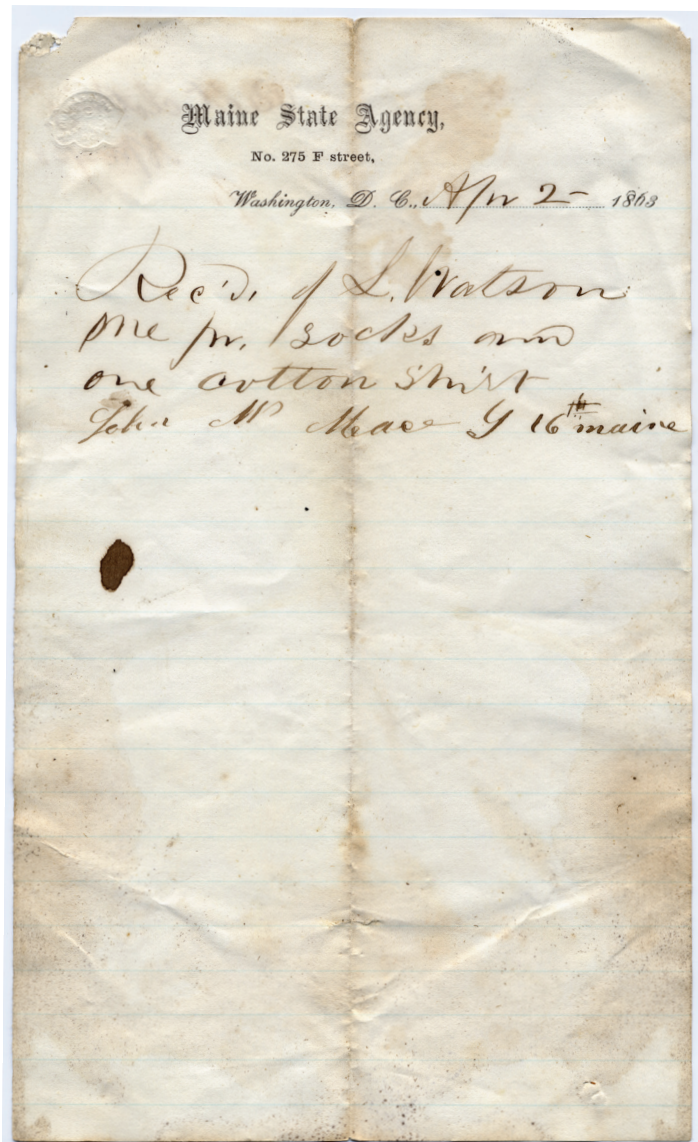 Maine State Agency,
No. 275 F street,
Washington, D. C., Apr 2 - 1863
Rec'd, of L. Watson
one pr. socks and
one cotton Shirt
John M Mace G 16th maine